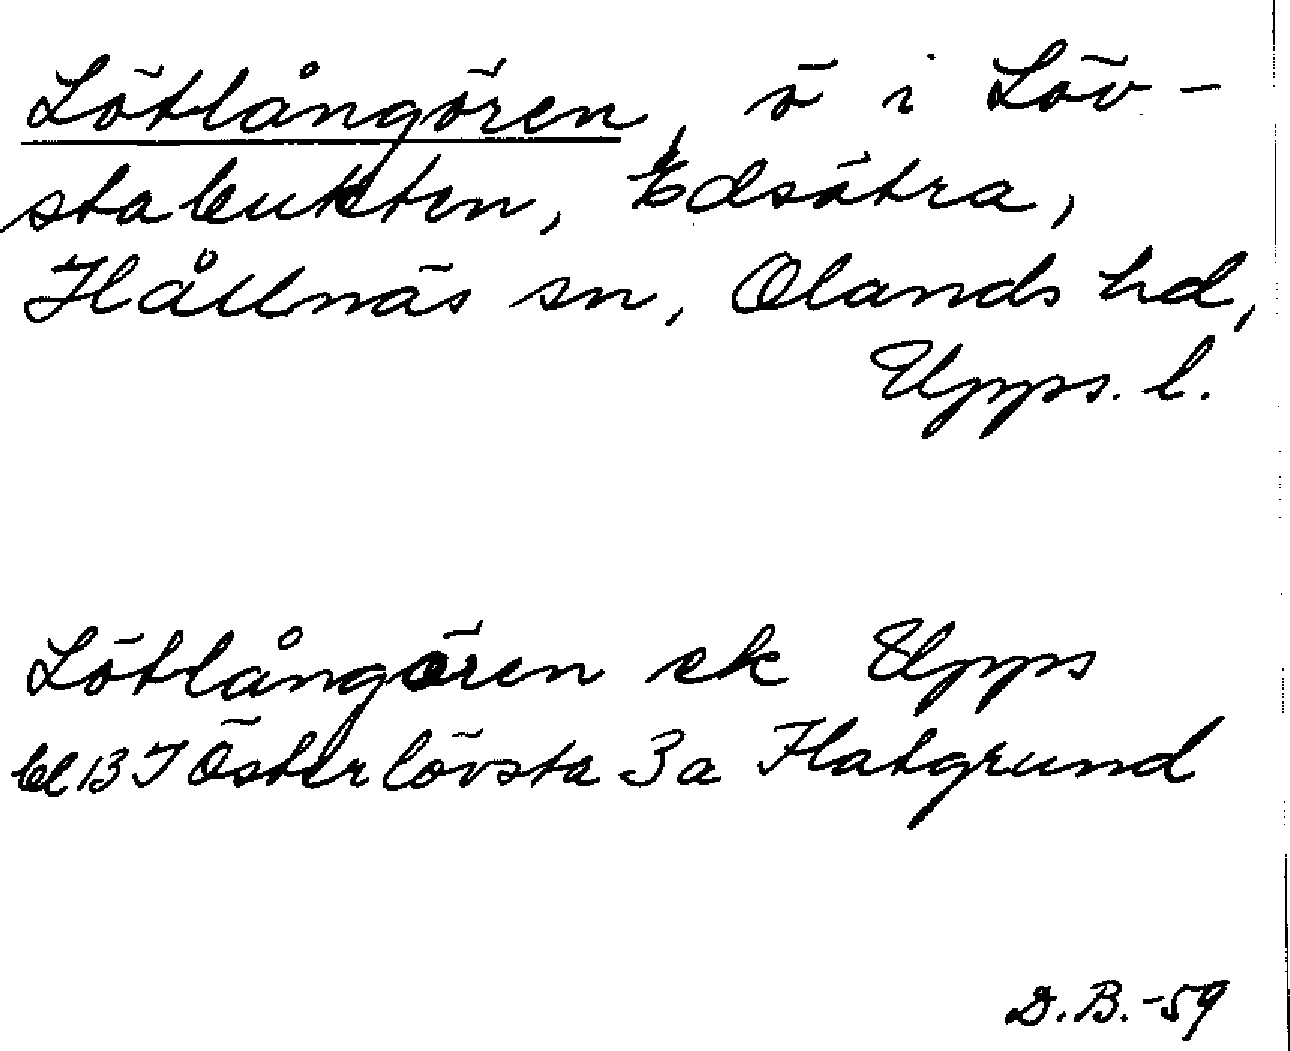 Lötlångören, ö i Löv-
stabukten, Edsätra,
Hållnäs sn, Olands hd,
Upps. l.
Lötlångören ek Upps
bl 13 I Österlövsta 3a Flatgrund
D.B.-59